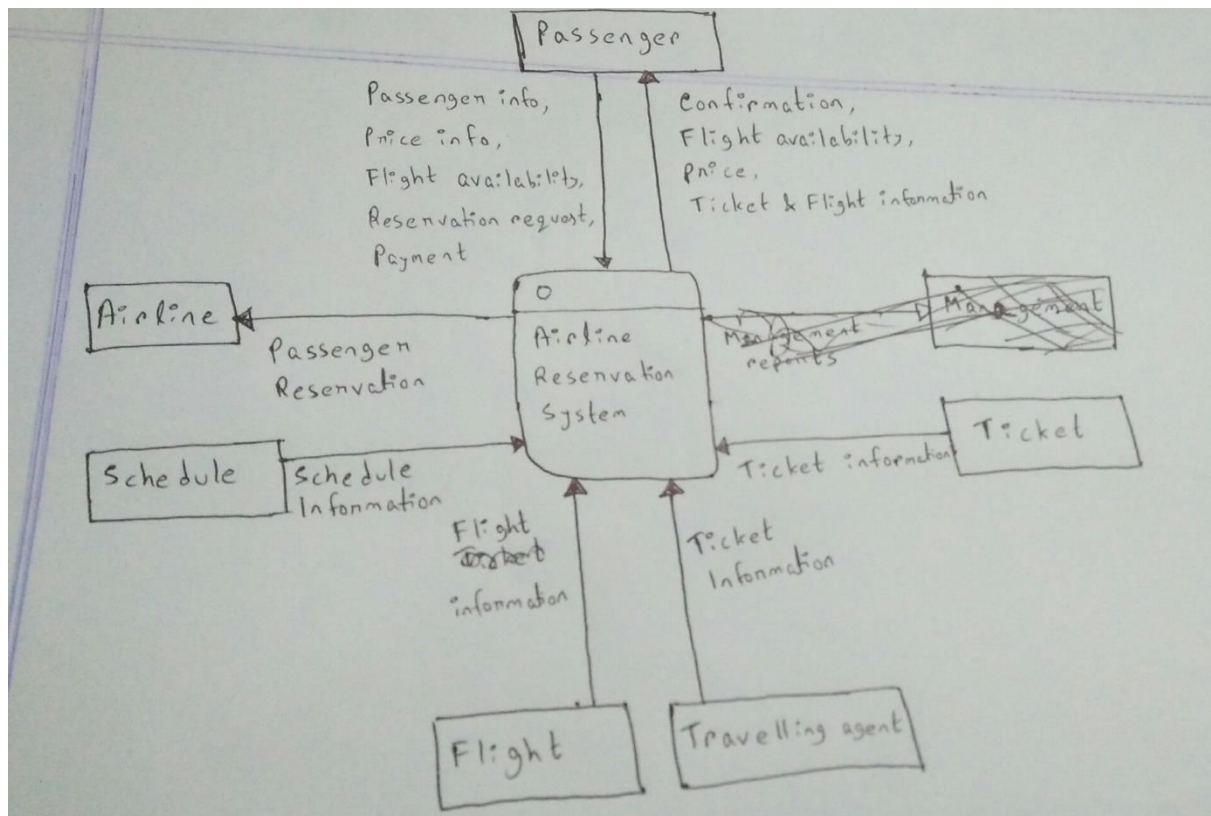 Passenger
Passenger info,
Price info,
Flight availability,
Reservation request,
Payment
Confirmation,
Flight availability,
price,
Ticket & Flight information
Airline
Passenger
Reservation
0
Airline
Reservation
System
Management
reports
Management
Schedule
Schedule
Information
Ticket
Ticket information
Flight
information
Ticket
Information
Flight
Travelling agent